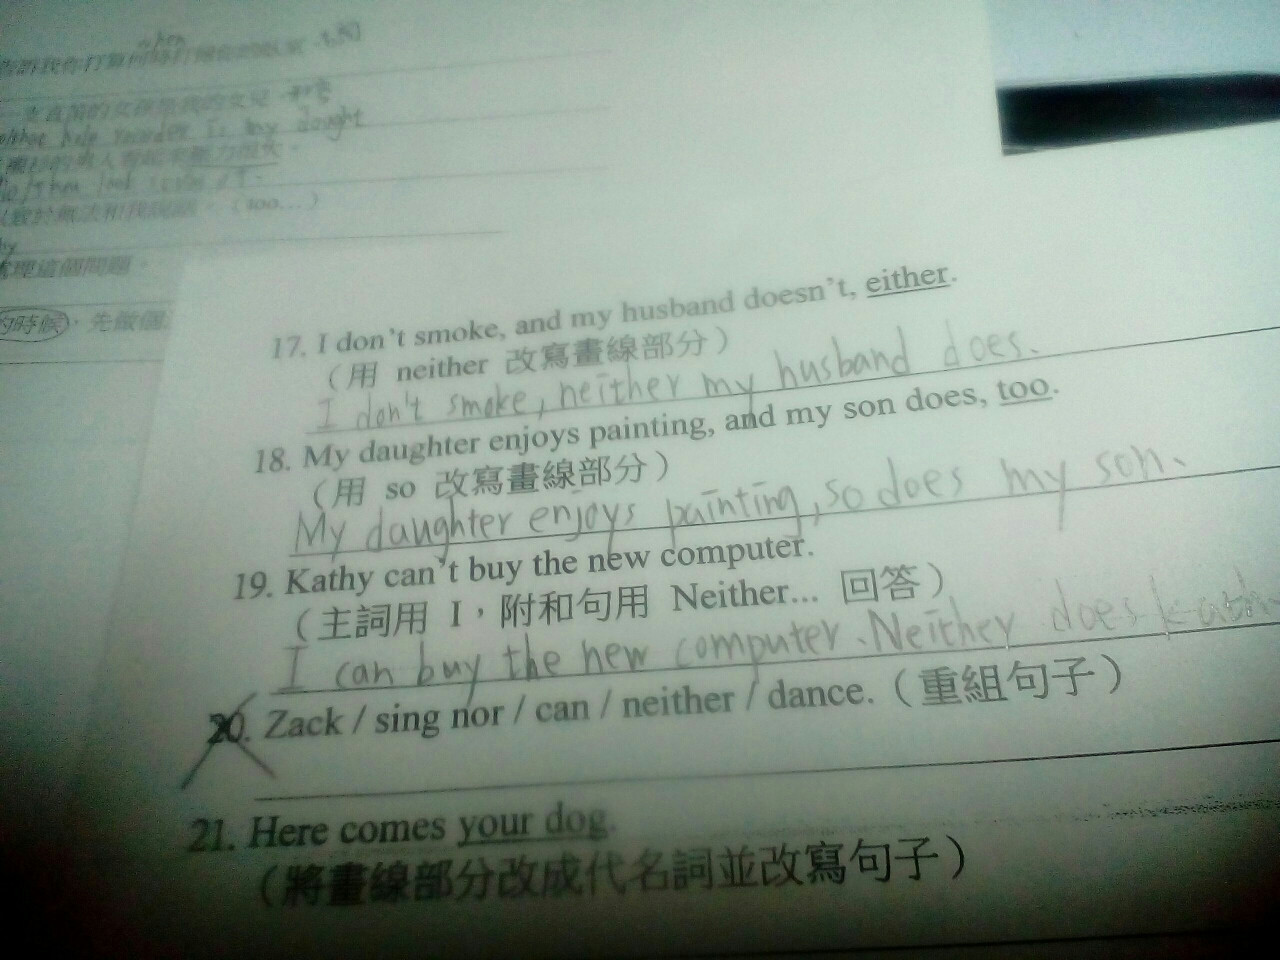 when
告訴我你打算何時打掃你的
的女孩是我的女兒。
help is my dought
的男人
look
無法和我說話。（too…）
處理這個問題。
的時候，先做個
17. I don't smoke, and my husband doesn't, either.
（用 neither 改寫畫線部分）
I don't smoke, neither my husband does.
18. My daughter enjoys painting, and my son does, too.
（用 so 改寫畫線部分）
My daughter enjoys painting, so does my son.
19. Kathy can't buy the new computer.
（主詞用 I，附和句用 Neither... 回答）
I can buy the new computer. Neither does kath
20. Zack / sing nor / can / neither / dance.（重組句子）
21. Here comes your dog.
（將畫線部分改成代名詞並改寫句子）